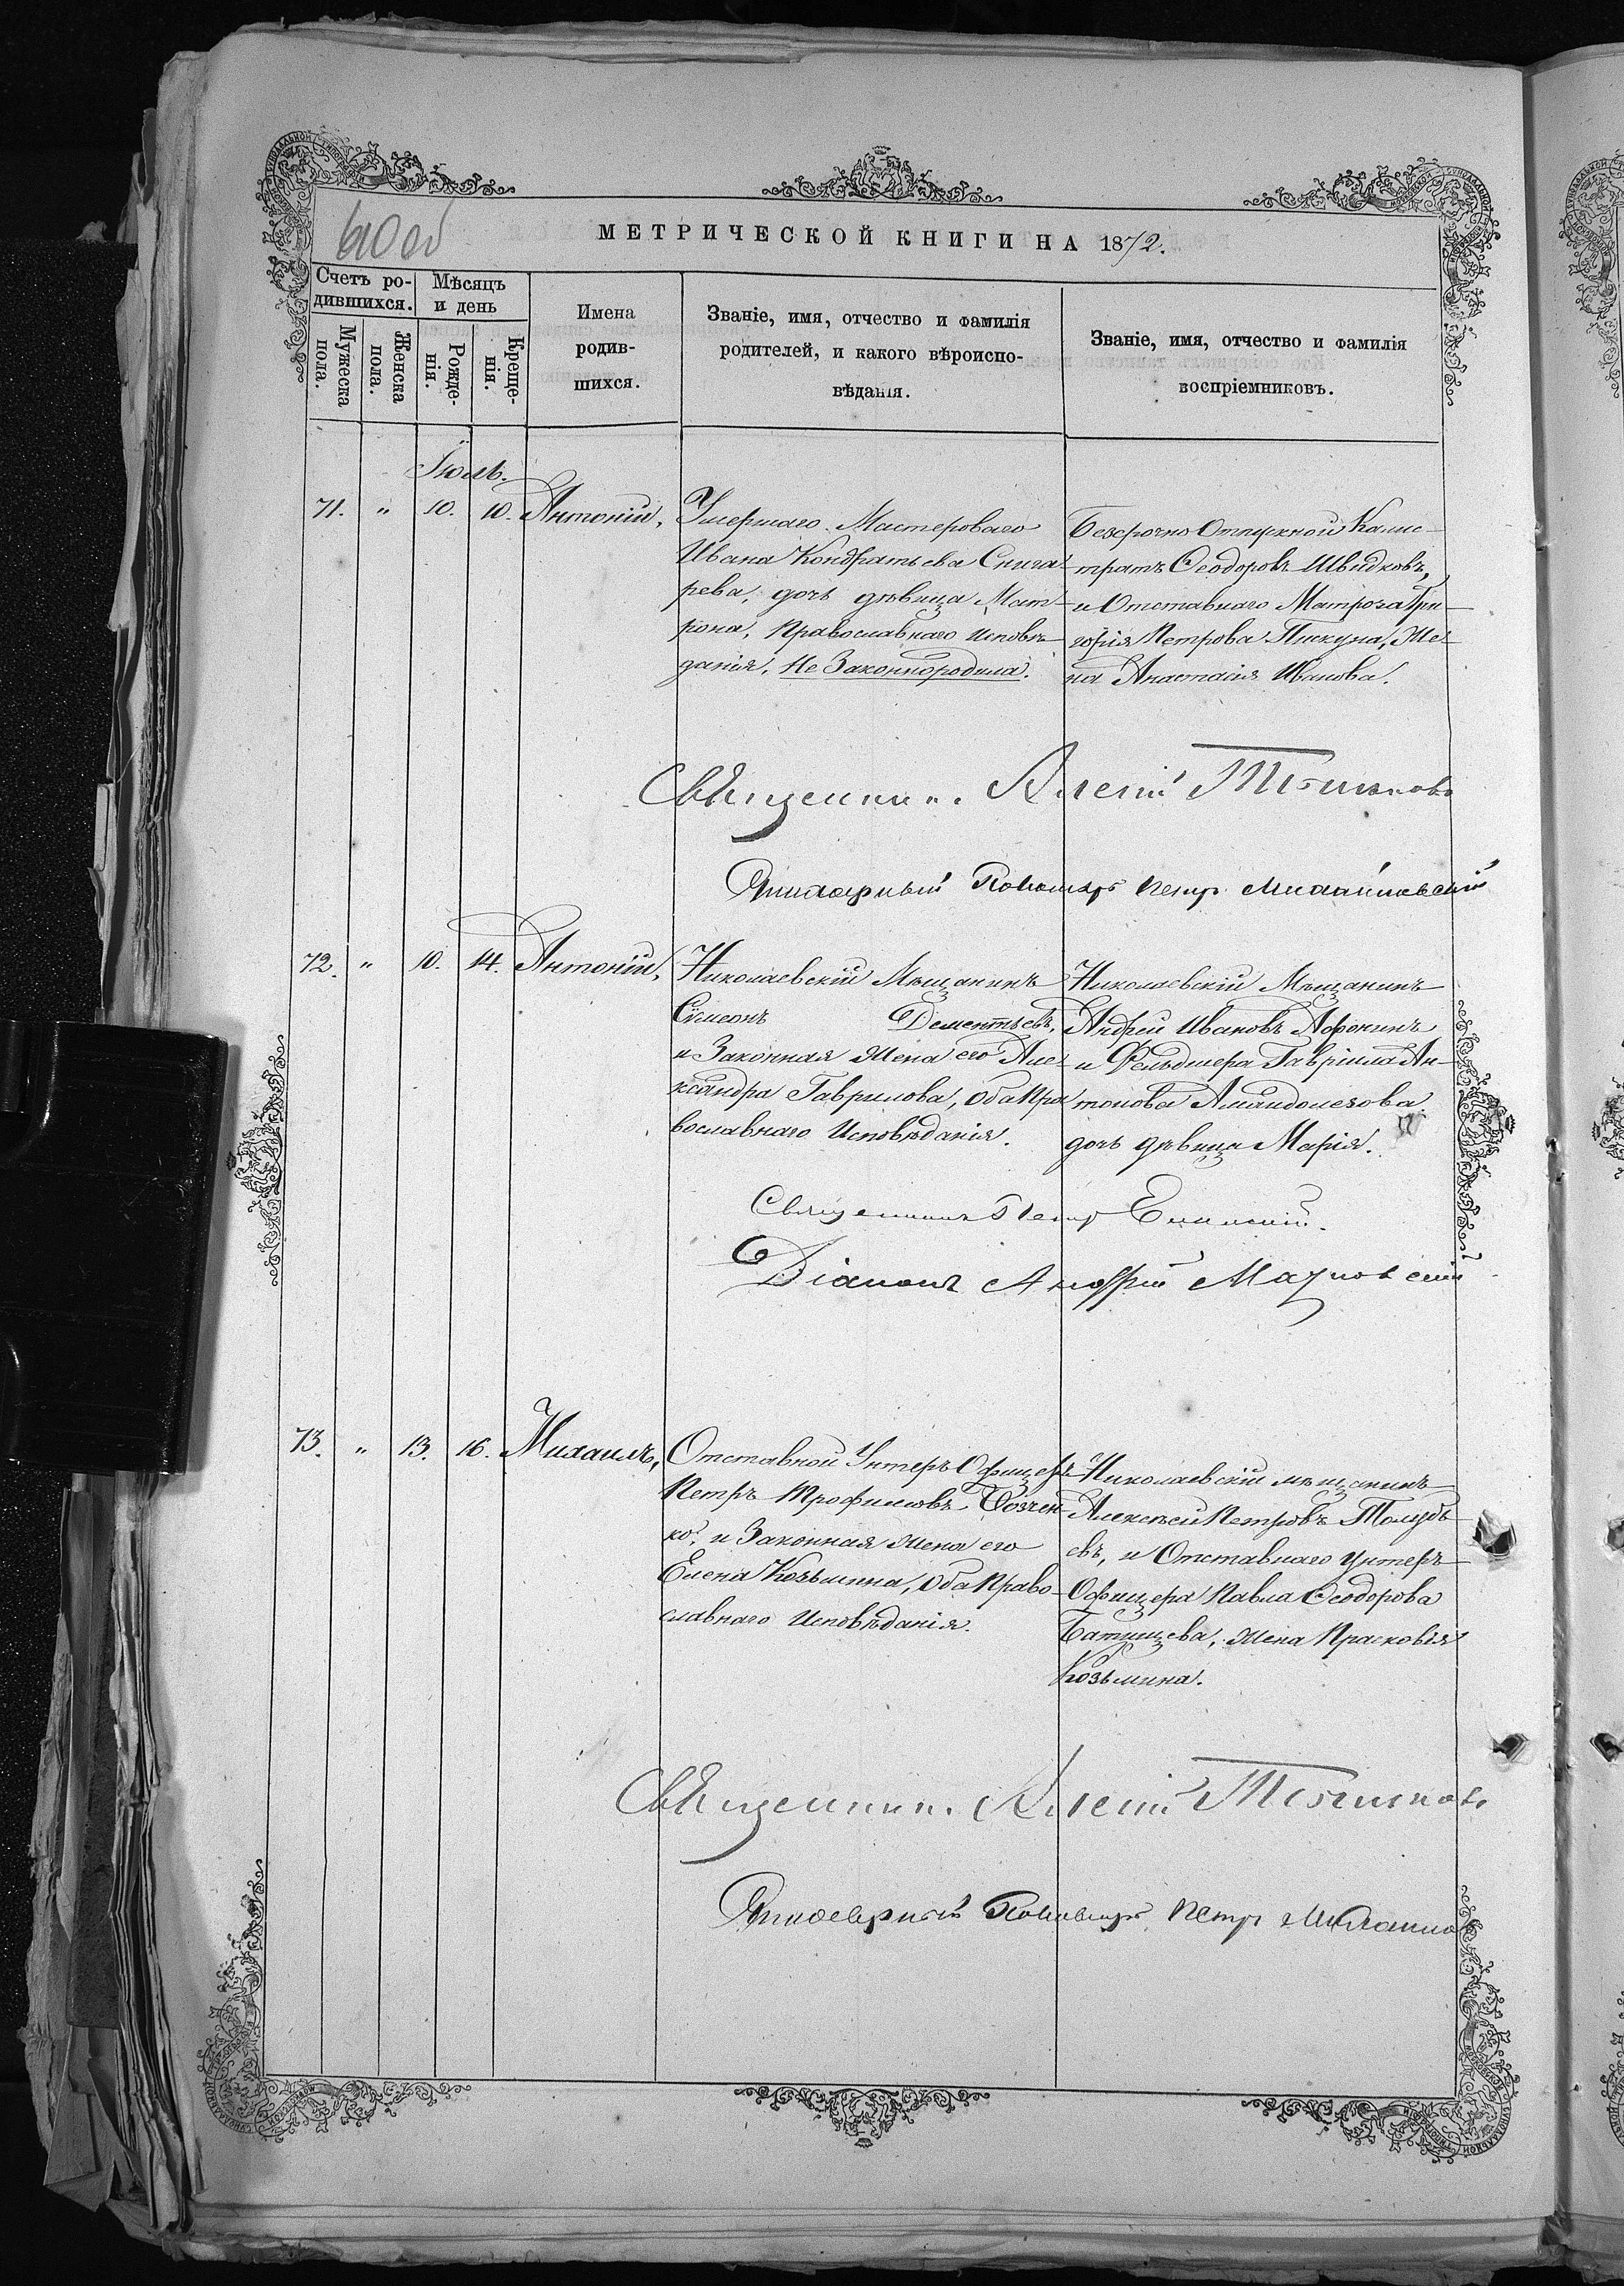 МЕТРИЧЕСКОЙ КНИГИ НА 1872.
Счетъ родившихся.
Мужеска пола.
Женска пола.
Мѣсяцъ и день
Рожденія.
Крещенія.
Имена родившихся.
Званіе, имя, отчество и фамилія родителей, и какого вѣроисповѣданія.
Званіе, имя, отчество и фамилія воспріемниковъ.
Іюль.
71. " 10. 10. Антоній,
Умершаго Мастероваго
Ивана Кондратьева Снига-
рева, дочь дѣвица Мат-
рона, Православнаго исповѣ-
данія. Не Законнородила.
Безсрочно Отпускной Калис-
тратъ Ѳеодоровъ Швидковъ,
и Отставнаго Матроза Гри-
горія Петрова Пикуна, Же-
на Анастасія Иванова.
Священник. Алексій
Петр Михайловскій
72. " 10. 14. Антоній,
Николаевскій Мѣщанинъ
Сѵмеонъ Дементьевъ,
и Законная Жена его Але-
ксандра Гаврилова, Оба Пра
вославнаго Исповѣданія.
Николаевскій Мѣщанинъ
Андрей Ивановъ Афонинъ
и Фельдшера Гавріила Ан-
тонова
дочь дѣвица Марія.
Священникъ Петр
Діаконъ Андрей
73. " 13. 16. Михаилъ,
Отставной Унтеръ Офицеръ
Петръ Трофимовъ
ко, и Законная Жена его
Елена Козьмина, Оба Право-
славнаго Исповѣданія.
Николаевскій мѣщанинъ
Алексѣй Петровъ Толубѣ-
евъ, и Отставнаго Унтеръ
Офицера Павла Ѳеодорова
Батищева, Жена Прасковія
Козьмина.
Священник. Алексій
Петр